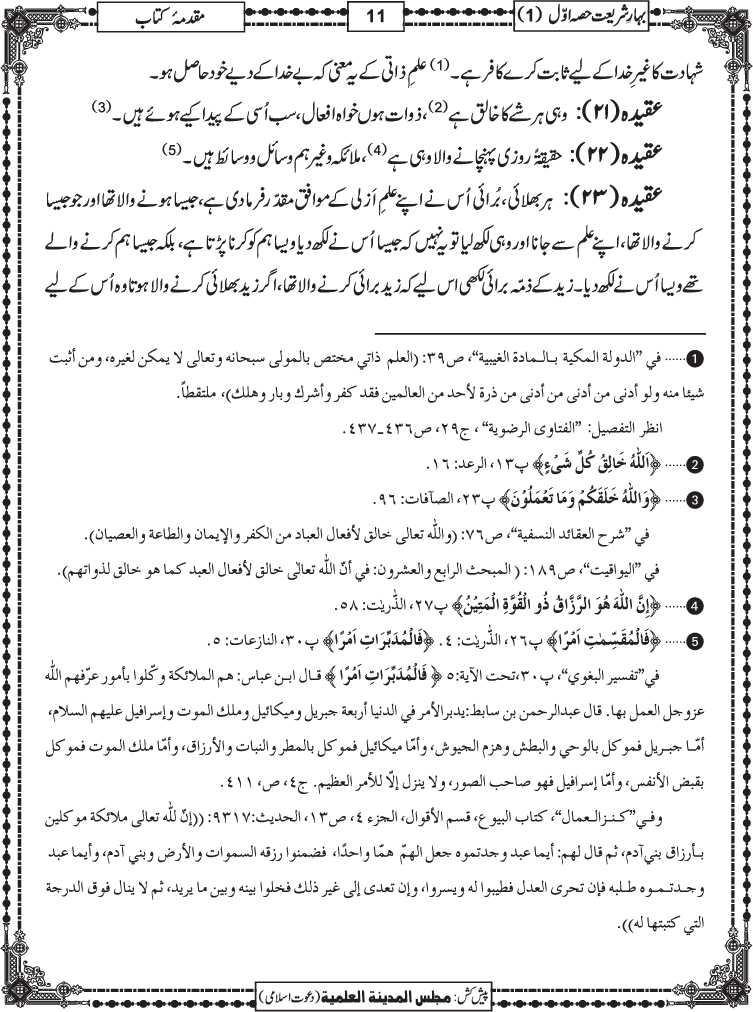 بہارِ شریعت حصہ اوّل (1)
11
مقدمۂ کتاب
شہادت کا غیرِ خدا کے لیے ثابت کرے کافر ہے۔ (1) علمِ ذاتی کے یہ معنی کہ بے خدا کے دیے خود حاصل ہو۔
عقیدہ (۲۱): وہی ہر شے کا خالق ہے (2)، ذوات ہوں خواہ افعال، سب اُسی کے پیدا کیے ہوئے ہیں۔ (3)
عقیدہ (۲۲): حقیقۃً روزی پہنچانے والا وہی ہے (4)، ملائکہ وغیرہم وسائل و وسائط ہیں۔ (5)
عقیدہ (۲۳): ہر بھلائی، بُرائی اُس نے اپنے علمِ اَزلی کے موافق مقدّر فرما دی ہے، جیسا ہونے والا تھا اور جو جیسا
کرنے والا تھا، اپنے علم سے جانا اور وہی لکھ لیا تو یہ نہیں کہ جیسا اُس نے لکھ دیا ویسا ہم کو کرنا پڑتا ہے، بلکہ جیسا ہم کرنے والے
تھے ویسا اُس نے لکھ دیا۔ زید کے ذمّہ برائی لکھی اس لیے کہ زید برائی کرنے والا تھا، اگر زید بھلائی کرنے والا ہوتا وہ اُس کے لیے
1 ...... في ”الدولة المكية بالمادة الغيبية“، ص۳۹: (العلم ذاتي مختص بالمولى سبحانه وتعالى لا يمكن لغيره، ومن أثبت
شيئا منه ولو أدنى من أدنى من أدنى من ذرة لأحد من العالمين فقد كفر وأشرك وبار وهلك)، ملتقطاً.
انظر التفصيل: ”الفتاوى الرضوية“، ج۲۹، ص۴۳۶۔۴۳۷.
2 ...... ﴿اَللّٰهُ خَالِقُ كُلِّ شَیْءٍ﴾ پ۱۳، الرعد: ۱۶.
3 ...... ﴿وَاللّٰهُ خَلَقَكُمْ وَمَا تَعْمَلُوْنَ﴾ پ۲۳، الصآفات: ۹۶.
في ”شرح العقائد النسفية“، ص۷۶: (والله تعالى خالق لأفعال العباد من الكفر والإيمان والطاعة والعصيان).
في ”اليواقيت“، ص۱۸۹: ( المبحث الرابع والعشرون: في أنّ الله تعالىٰ خالق لأفعال العبد كما هو خالق لذواتهم).
4 ...... ﴿اِنَّ اللّٰهَ هُوَ الرَّزَّاقُ ذُو الْقُوَّةِ الْمَتِيْنُ﴾ پ۲۷، الذّٰریٰت: ۵۸.
5 ...... ﴿فَالْمُقَسِّمٰتِ اَمْرًا﴾ پ۲۶، الذّٰریٰت: ۴. ﴿فَالْمُدَبِّرَاتِ اَمْرًا﴾ پ۳۰، النازعات: ۵.
في”تفسير البغوي“، پ۳۰،تحت الآية:۵ ﴿ فَالْمُدَبِّرَاتِ اَمْرًا ﴾ قال ابن عباس: هم الملائكة وكّلوا بأمور عرّفهم الله
عزوجل العمل بها. قال عبدالرحمن بن سابط:يدبرالأمر في الدنيا أربعة جبريل وميكائيل وملك الموت وإسرافيل عليهم السلام،
أمّا جبريل فموكل بالوحي والبطش وهزم الجيوش، وأمّا ميكائيل فموكل بالمطر والنبات والأرزاق، وأمّا ملك الموت فموكل
بقبض الأنفس، وأمّا إسرافيل فهو صاحب الصور، ولا ينزل إلّا للأمر العظيم. ج۴، ص، ۴۱۱.
وفي”كنزالعمال“، كتاب البيوع، قسم الأقوال، الجزء ۴، ص۱۳، الحديث:۹۳۱۷: ((إنّ لله تعالى ملائكة موكلين
بأرزاق بني آدم، ثم قال لهم: أيما عبد وجدتموه جعل الهمّ همّا واحدًا، فضمنوا رزقه السموات والأرض وبني آدم، وأيما عبد
وجدتموه طلبه فإن تحرى العدل فطيبوا له ويسروا، وإن تعدى إلى غير ذلك فخلوا بينه وبين ما يريد، ثم لا ينال فوق الدرجة
التي كتبتها له)).
پیش کش: مجلس المدینة العلمیة (دعوتِ اسلامی)